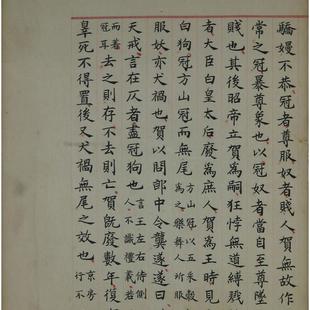 驕嫚不恭冠者尊服奴者賤人賀無故作
常之冠暴尊象也以冠奴者當自至尊墜
賤也其後昭帝立賀為嗣狂悖無道縛戮
者大臣白皇太后廢為庶人賀為王時見
白狗冠方山冠而無尾方山冠以五采縠為之樂舞人所服
服妖亦犬禍也賀以問郎中令龔遂遂曰
天戒言在仄者盡冠狗也言王左右侍側人不識禮義若
而著冠耳去之則存不去則亡賀既廢數年復
辠死不得置後又犬禍無尾之效也京房行不